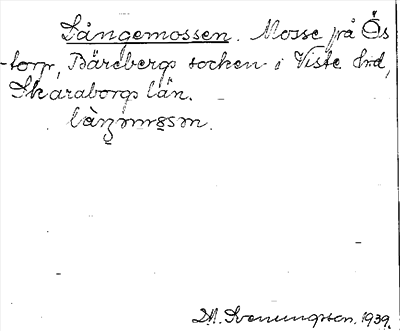 Långemossen. Mosse på Ös
-torp, Bärebergs socken i Viste hrd,
Skaraborgs län.
Svenungsson. 1939.